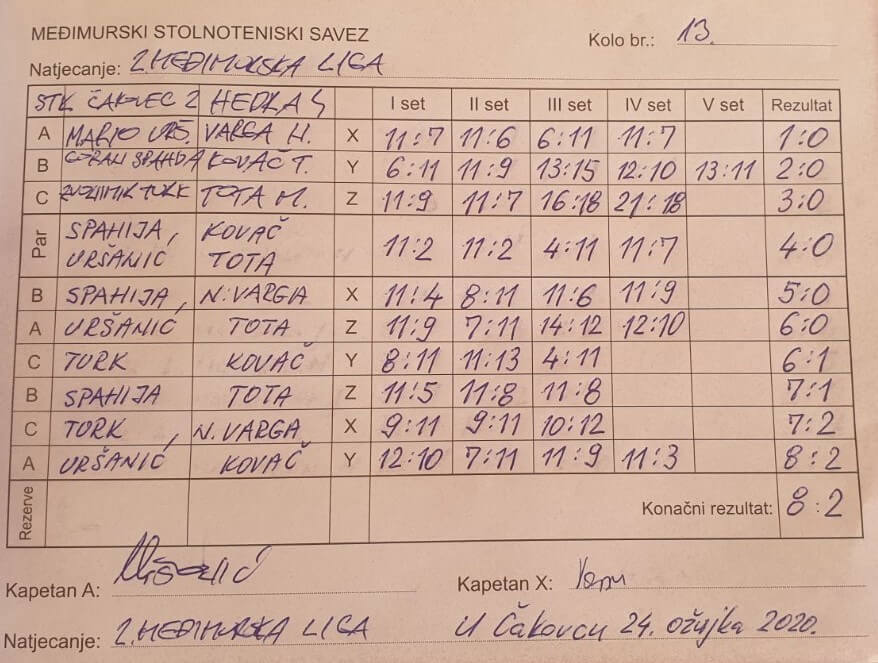 MEĐIMURSKI STOLNOTENISKI SAVEZ
Kolo br.: 13.
Natjecanje: 2. MEĐIMURSKA LIGA
STK ČAKOVEC 2 HEDLAS I set II set III set IV set V set Rezultat
A MARIO URŠ. VARGA N. X 11:7 11:6 6:11 11:7 1:0
B GORAN SPAHIJA KOVAČ T. Y 6:11 11:9 13:15 12:10 13:11 2:0
C TURK TOTA M. Z 11:9 11:7 16:18 21:18 3:0
Par SPAHIJA, KOVAČ 11:2 11:2 4:11 11:7 4:0
URŠANIĆ TOTA
B SPAHIJA, N. VARGA X 11:4 8:11 11:6 11:9 5:0
A URŠANIĆ TOTA Z 11:9 7:11 14:12 12:10 6:0
C TURK KOVAČ Y 8:11 11:13 4:11 6:1
B SPAHIJA TOTA Z 11:5 11:8 11:8 7:1
C TURK, N. VARGA X 9:11 9:11 10:12 7:2
A URŠANIĆ KOVAČ Y 12:10 7:11 11:9 11:3 8:2
Rezerve Konačni rezultat: 8:2
Kapetan A: Kapetan X:
Natjecanje: 2. MEĐIMURSKA LIGA U Čakovcu 24. ožujka 2020.